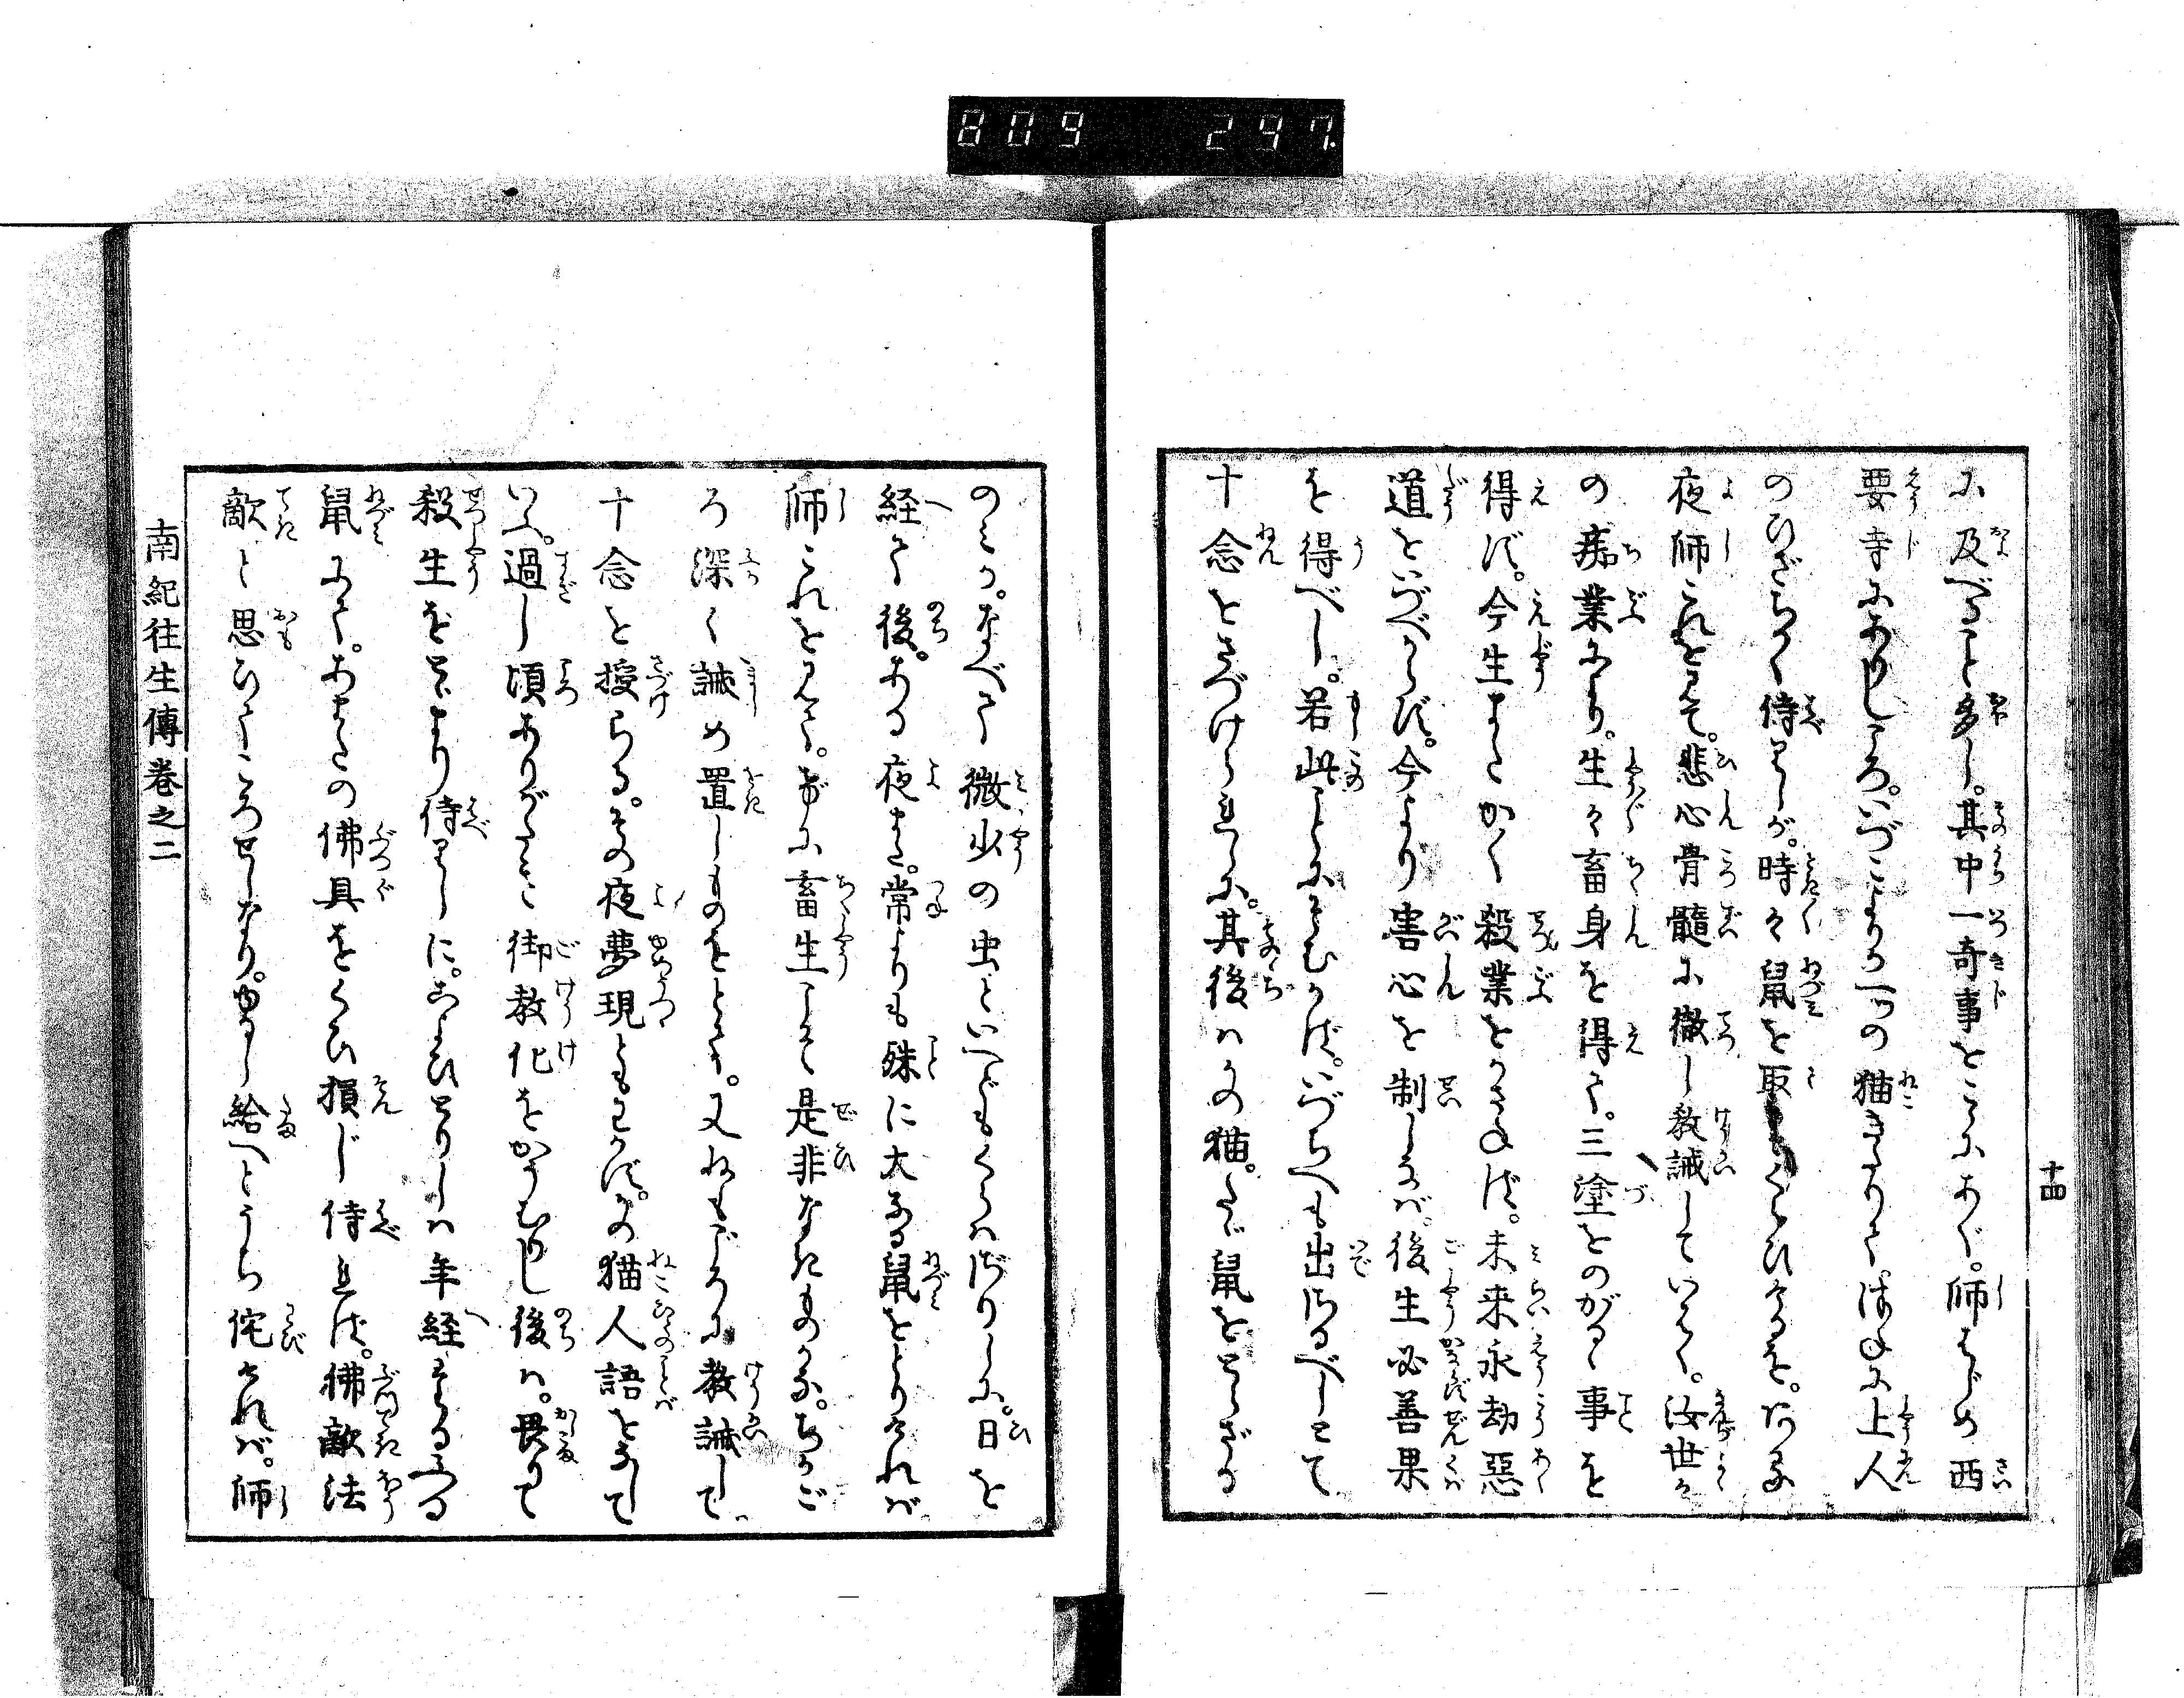 809 297.
十四
に及べること多し。其中一奇事をこゝにあぐ。師はじめ西
要寺にありしころ。いづこよりか一ツの猫きたりて。つねに上人
のひざちかく侍りしが。時々鼠を取てくらひけるを。ある
夜師これを見て。悲心骨髄に徹し教誡していはく。汝世々
の痴業により。生々畜身を得て。三塗をのがるゝ事を
得ず。今生またかく殺業をかさねば。未来永劫惡
道をいづべからず。今より害心を制しなば。後生必善果
を得べし。若此ことにそむかば。いづちへも出さるべしとて
十念をさづけられしに。其後はかの猫。たゞ鼠をとらざる
のみか。なべて微少の虫といへどもくらはざりしに。日を
経て後。ある夜また。常よりも殊に大なる鼠をとりければ
師これを見て。げに畜生こそ是非なきものかな。ちかご
ろ深く誡め置しものをとて。又ねもごろに教誡して。
十念を授らる。その夜夢現ともわかず。かの猫人語をなして
いふ。過し頃ありがたき御教化をかうむりし後は。畏りて
殺生をとゞまり侍りしに。こよひとりしは年経たるふる
鼠にて。あまたの佛具をくひ損じ侍れば。佛敵法
敵と思ひてころせしなり。ゆるし給へとうち侘ければ。師
南紀往生傳巻之二